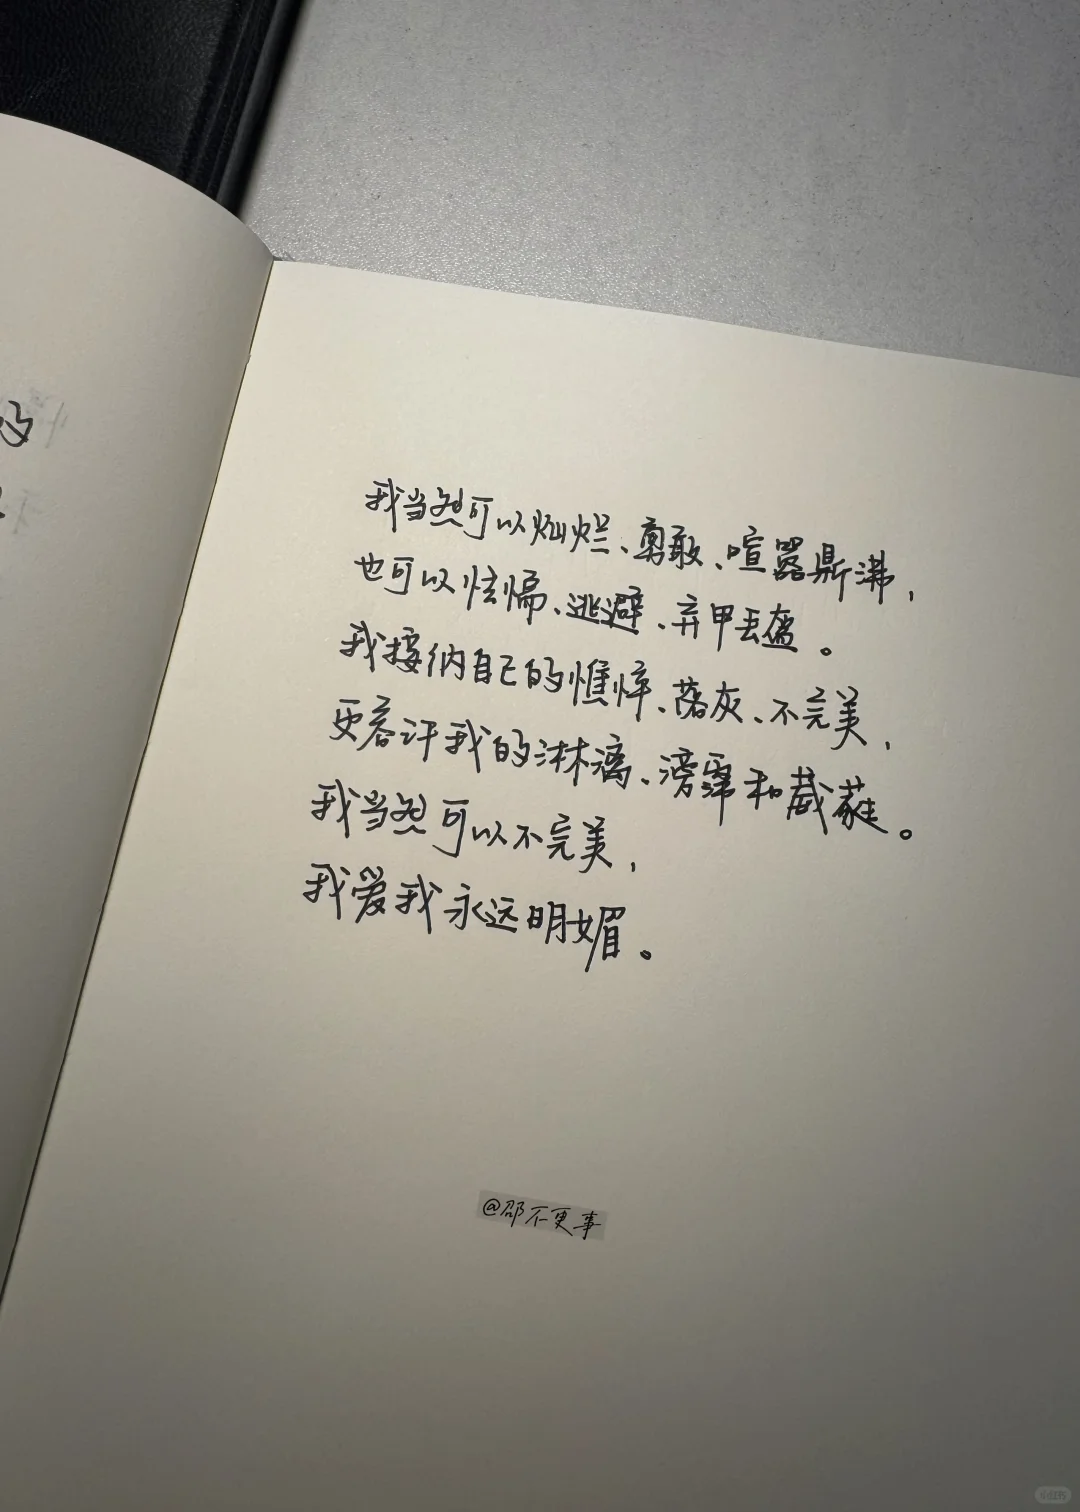 我当然可以灿烂、勇敢、喧嚣鼎沸，
也可以怯懦、逃避、弃甲丢盔。
我接纳自己的憔悴、落灰、不完美，
更容许我的淋漓、滂霈和葳蕤。
我当然可以不完美，
我爱我永远明媚。
@邵不更事